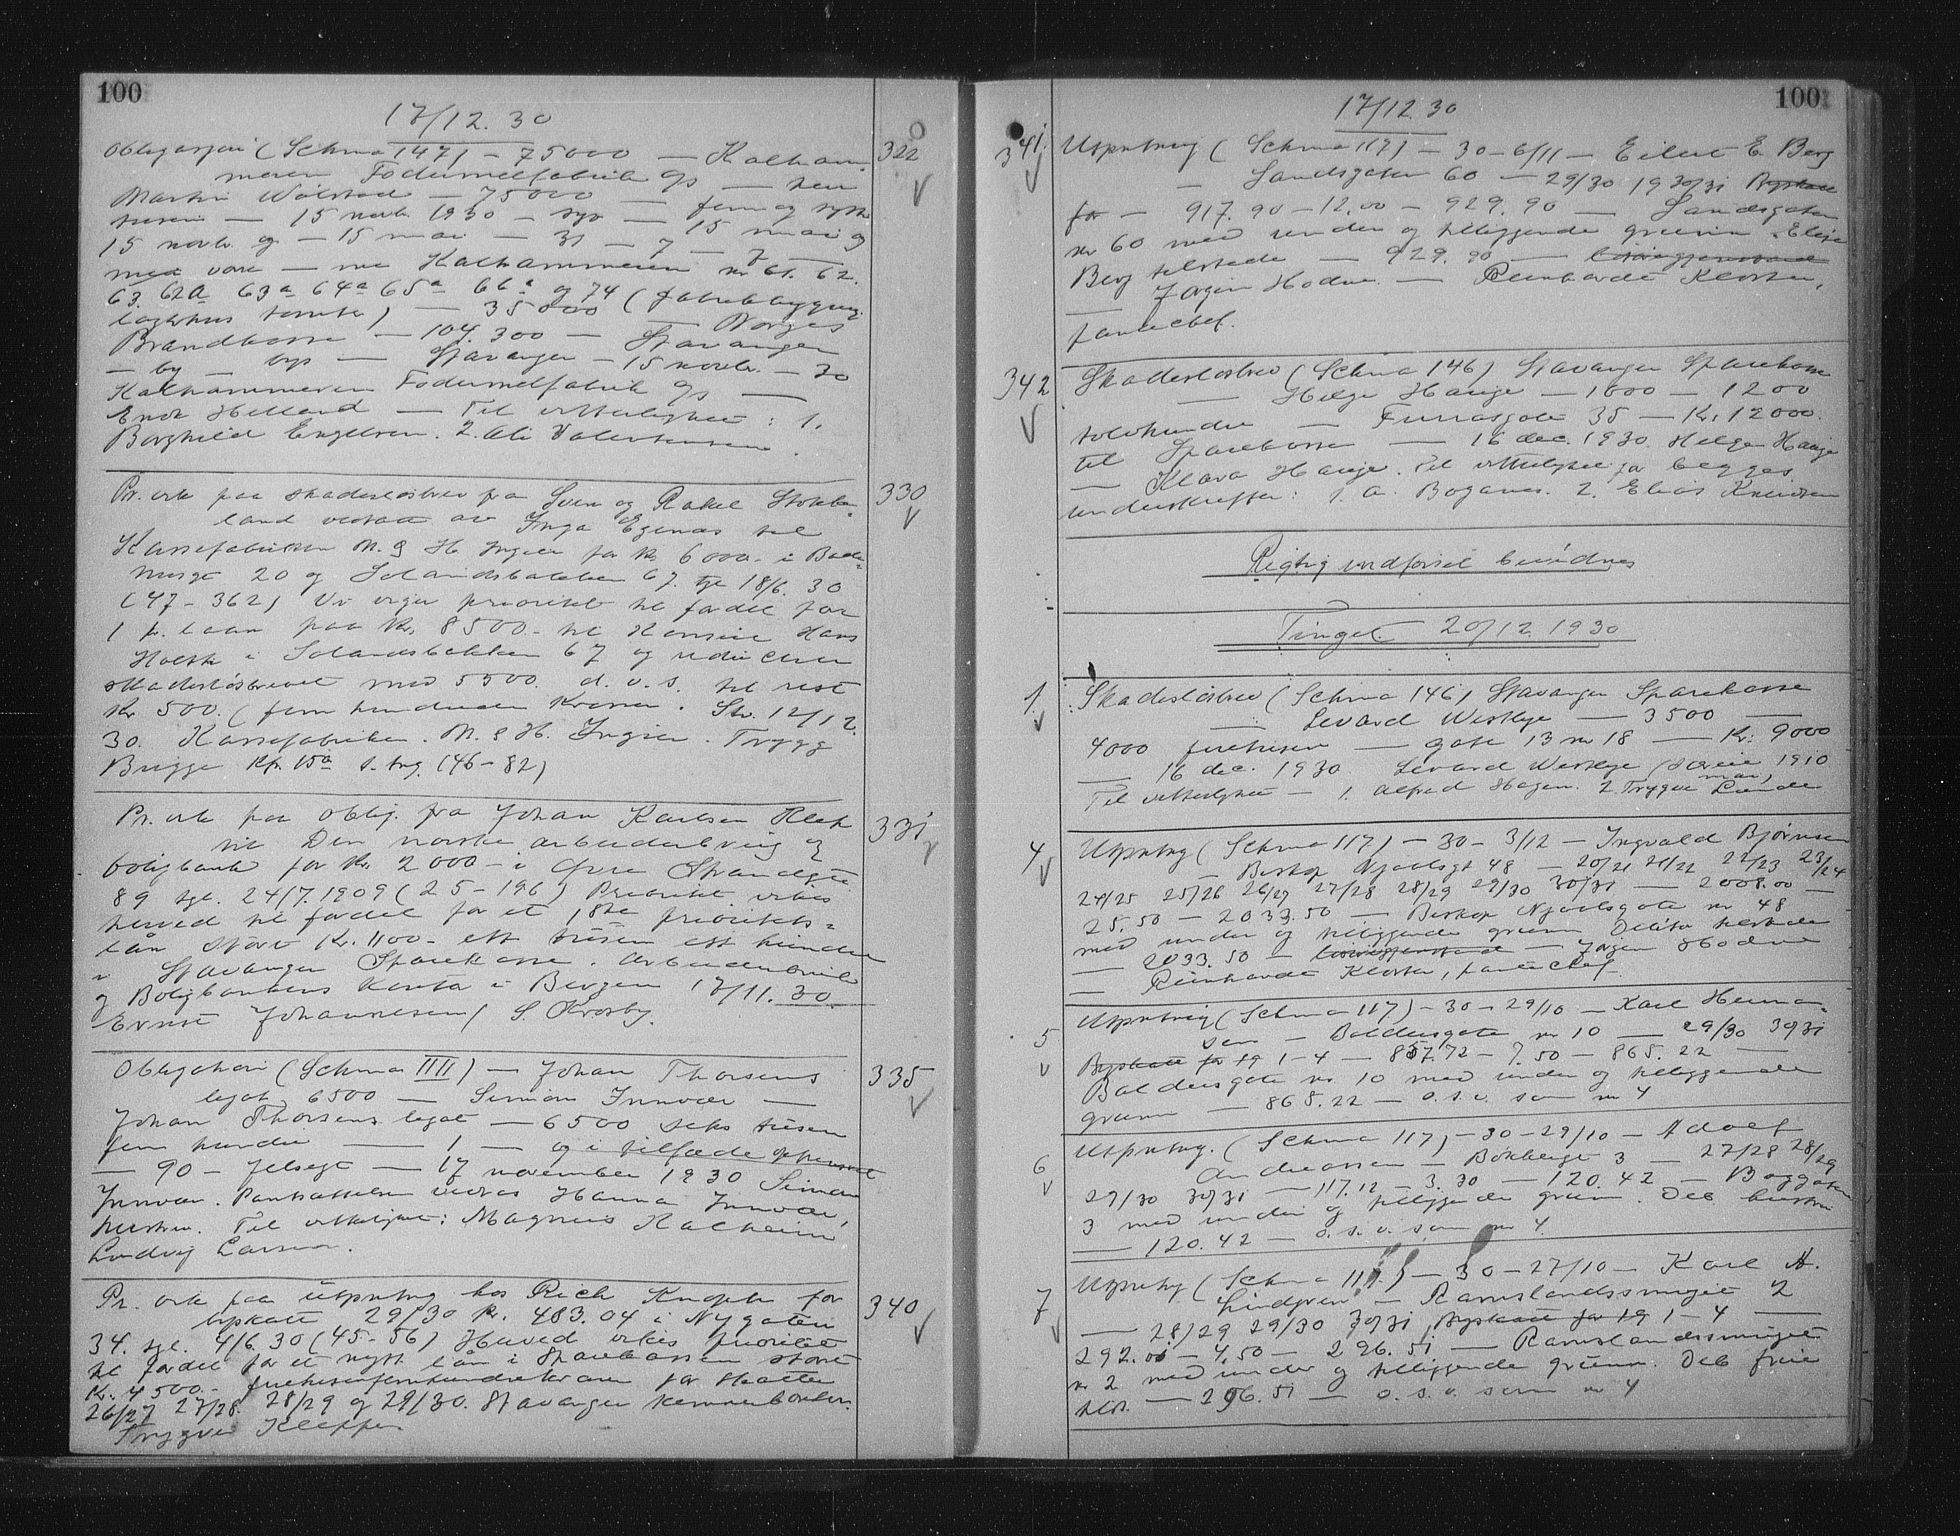 100
17/12.30
Obligasjon (Schma 147) – 75000 — Kalham
322
meren Fodermelfabrik
Martin Wølstad — 75000 — fem og sytti
tusen — 15 novbr. 1930 – syv — 15 mai og
15 novbr. og – 15 mai – 31 – 7 – 7 —
med vore — Kalhammeren nr 61. 62.
63. 62a 63a 64a 65a 66a og 74 (fabrikbygning
lagerhus tomter) — 35000 — Norges
Brandkasse — 104.300 — Stavanger
– by – bys — Stavanger – 15 novbr. – 30
Kalhammeren Fodermelfabrik —
Endr Helland — Til vitterlighet: 1.
Borghild Engelsen. 2. Ole
Pr. erk paa skadesløsbrev fra Sven og Rakel Stokke
330
land utstedt av Inga Egenæs til
Kassefabrikken M. & H. Ingier for kr 6000 – i
20 og Solandsbakken 67. tgl 18/6. 30
(47 – 362) Vi viger prioritet til fordel for
1 pr. laan paa Kr. 8500 – til Hans
Holst i Solandsbakken 67 og reducerer
skadesløsbrevet med 5500. d.v.s. til rest
Kr. 500. (fem hundrede Kroner. Stv. 12/12
30. Kassefabriken. M. & H. Ingier. Trygg
Brygge Kfr. 15a s. brg. (46 – 82)
Pr. erk paa oblig. fra Johan Karlsen Klep
331
til Den norske arbeiderbruk og
boligbank for Kr. 2000 – i Øvre Strandgt.
89 tgl. 24/7.1909 (25 – 196) Prioritet vikes
herved til fordel for et 1ste prioritets-
lån stort Kr. 1100 – ett tusen ett hundre
i Stavanger Sparekasse. Arbeiderbruk
og Boligbankens kontor i Bergen 17/11. 30
Ernst Johannesen / S. Krosby.
Obligation (Schma IIII) — Johan Thorsens
335
legat 6500 — Simon Innvær —
Johan Thorsens legat — 6500 seks tusen
fem hundre — 1 — og i tilfælde
— 90 – Jelsegt — 17 november 1930 Simon
Innvær. Pantsettelsen vedtas Hanna Innvær,
hustru. Til vitterlighet: Magnus Kalheim
Ludvig Larsen.
Pr. erk paa utpantning hos Rich Knoph for
340
byskatt 29/30 kr. 483.04 i Nygaten
34. tgl. 4/6.30 (45–56) Herved vikes prioritet
til fordel for et nytt lån i Sparekassen stort
Kr. 4500 – firetusenfemhundrekroner for skatter
26/27 27/28. 28/29 og 29/30. Stavanger kemnerkontor.
Trygve Kleppe
100
17/12.30
341.
Utpntng (Schma 117) – 30 – 6/11 – Eilert E. Berg
– Sandsgaten 60 – 29/30 1930/31 Byskatt
for – 917.90 – 12.00 – 929.90 — Sandsgaten
nr 60 med under og tilliggende grunn.
Berg tilstede – 929.90 —
Jørgen Hodne. — Reinhardt Kloster,
pantechef.
342
Skadesløsbrev (Schma 146) Stavanger Sparekasse
— Helge Hauge – 1000 – 1200
tolvhundre — Furrasgate 35 – Kr. 12000.
til Sparekassen — 16 dec. 1930. Helge Hauge
— Klara Hauge. Til vitterlighet for begges
underskrifter: 1. A. Boganes. 2. Elias Knudsen
Rigtig indførsel bevidnes
Tinget 20/12 1930
1.
Skadesløsbrev (Schma 146) Stavanger Sparekasse
— Sevard Weskye — 3500 —
4000 firetusen — gate 13 nr 18 — Kr: 9000
— 16 dec. 1930. Sevard Weskye 1910
Til vitterlighet — 1. Alfred Hagen. 2 Trygve Lunde
4
Utpntng (Schma 117) – 30 – 3/12 – Ingvald Bjørnsen
– Biskop Njaalsgt 48 – 20/21 21/22 22/23 23/24
24/25 25/26 26/27 27/28 28/29 29/30 30/31 — 2008.00 —
25.50 – 2033.50 — Biskop Njaalsgate nr 48
med under og tilliggende grunn tilstede
— 2033.50 – — Jørgen Hodne
— Reinhardt Kloster, pantechef.
5
Utpntng (Schma 117) – 30 – 29/10 – Karl Herman
sen – Baldersgate nr 10 — 29/30 30/31
Byskatt for 19 1–4 — 857.72 – 7.50 – 865.22 —
Baldersgate nr 10 med under og tilliggende
grunn — 865.22 – o.s.v. som nr 4
6
Utpntng. (Schma 117) – 30 – 29/10 – Adolf
Andreassen – 3 – 27/28 28/29
29/30 30/31 – 117.12 – 3.30 – 120.42 –
3 med under og tilliggende grunn. Deb hustru
— 120.42 – o.s.v. som nr 4.
7
Utpntng (Schma 117) – 30 – 27/10 – Karl A.
Lindgren – Ramslandssmuget 2
— 28/29 29/30 30/31 Byskatt for 19 1–4 —
292.01 – 4.50 – 296.51 — Ramslandssmuget
nr 2 med under og tilliggende grunn. Deb frue
tilst. — 296.51 – o.s.v. som nr 4